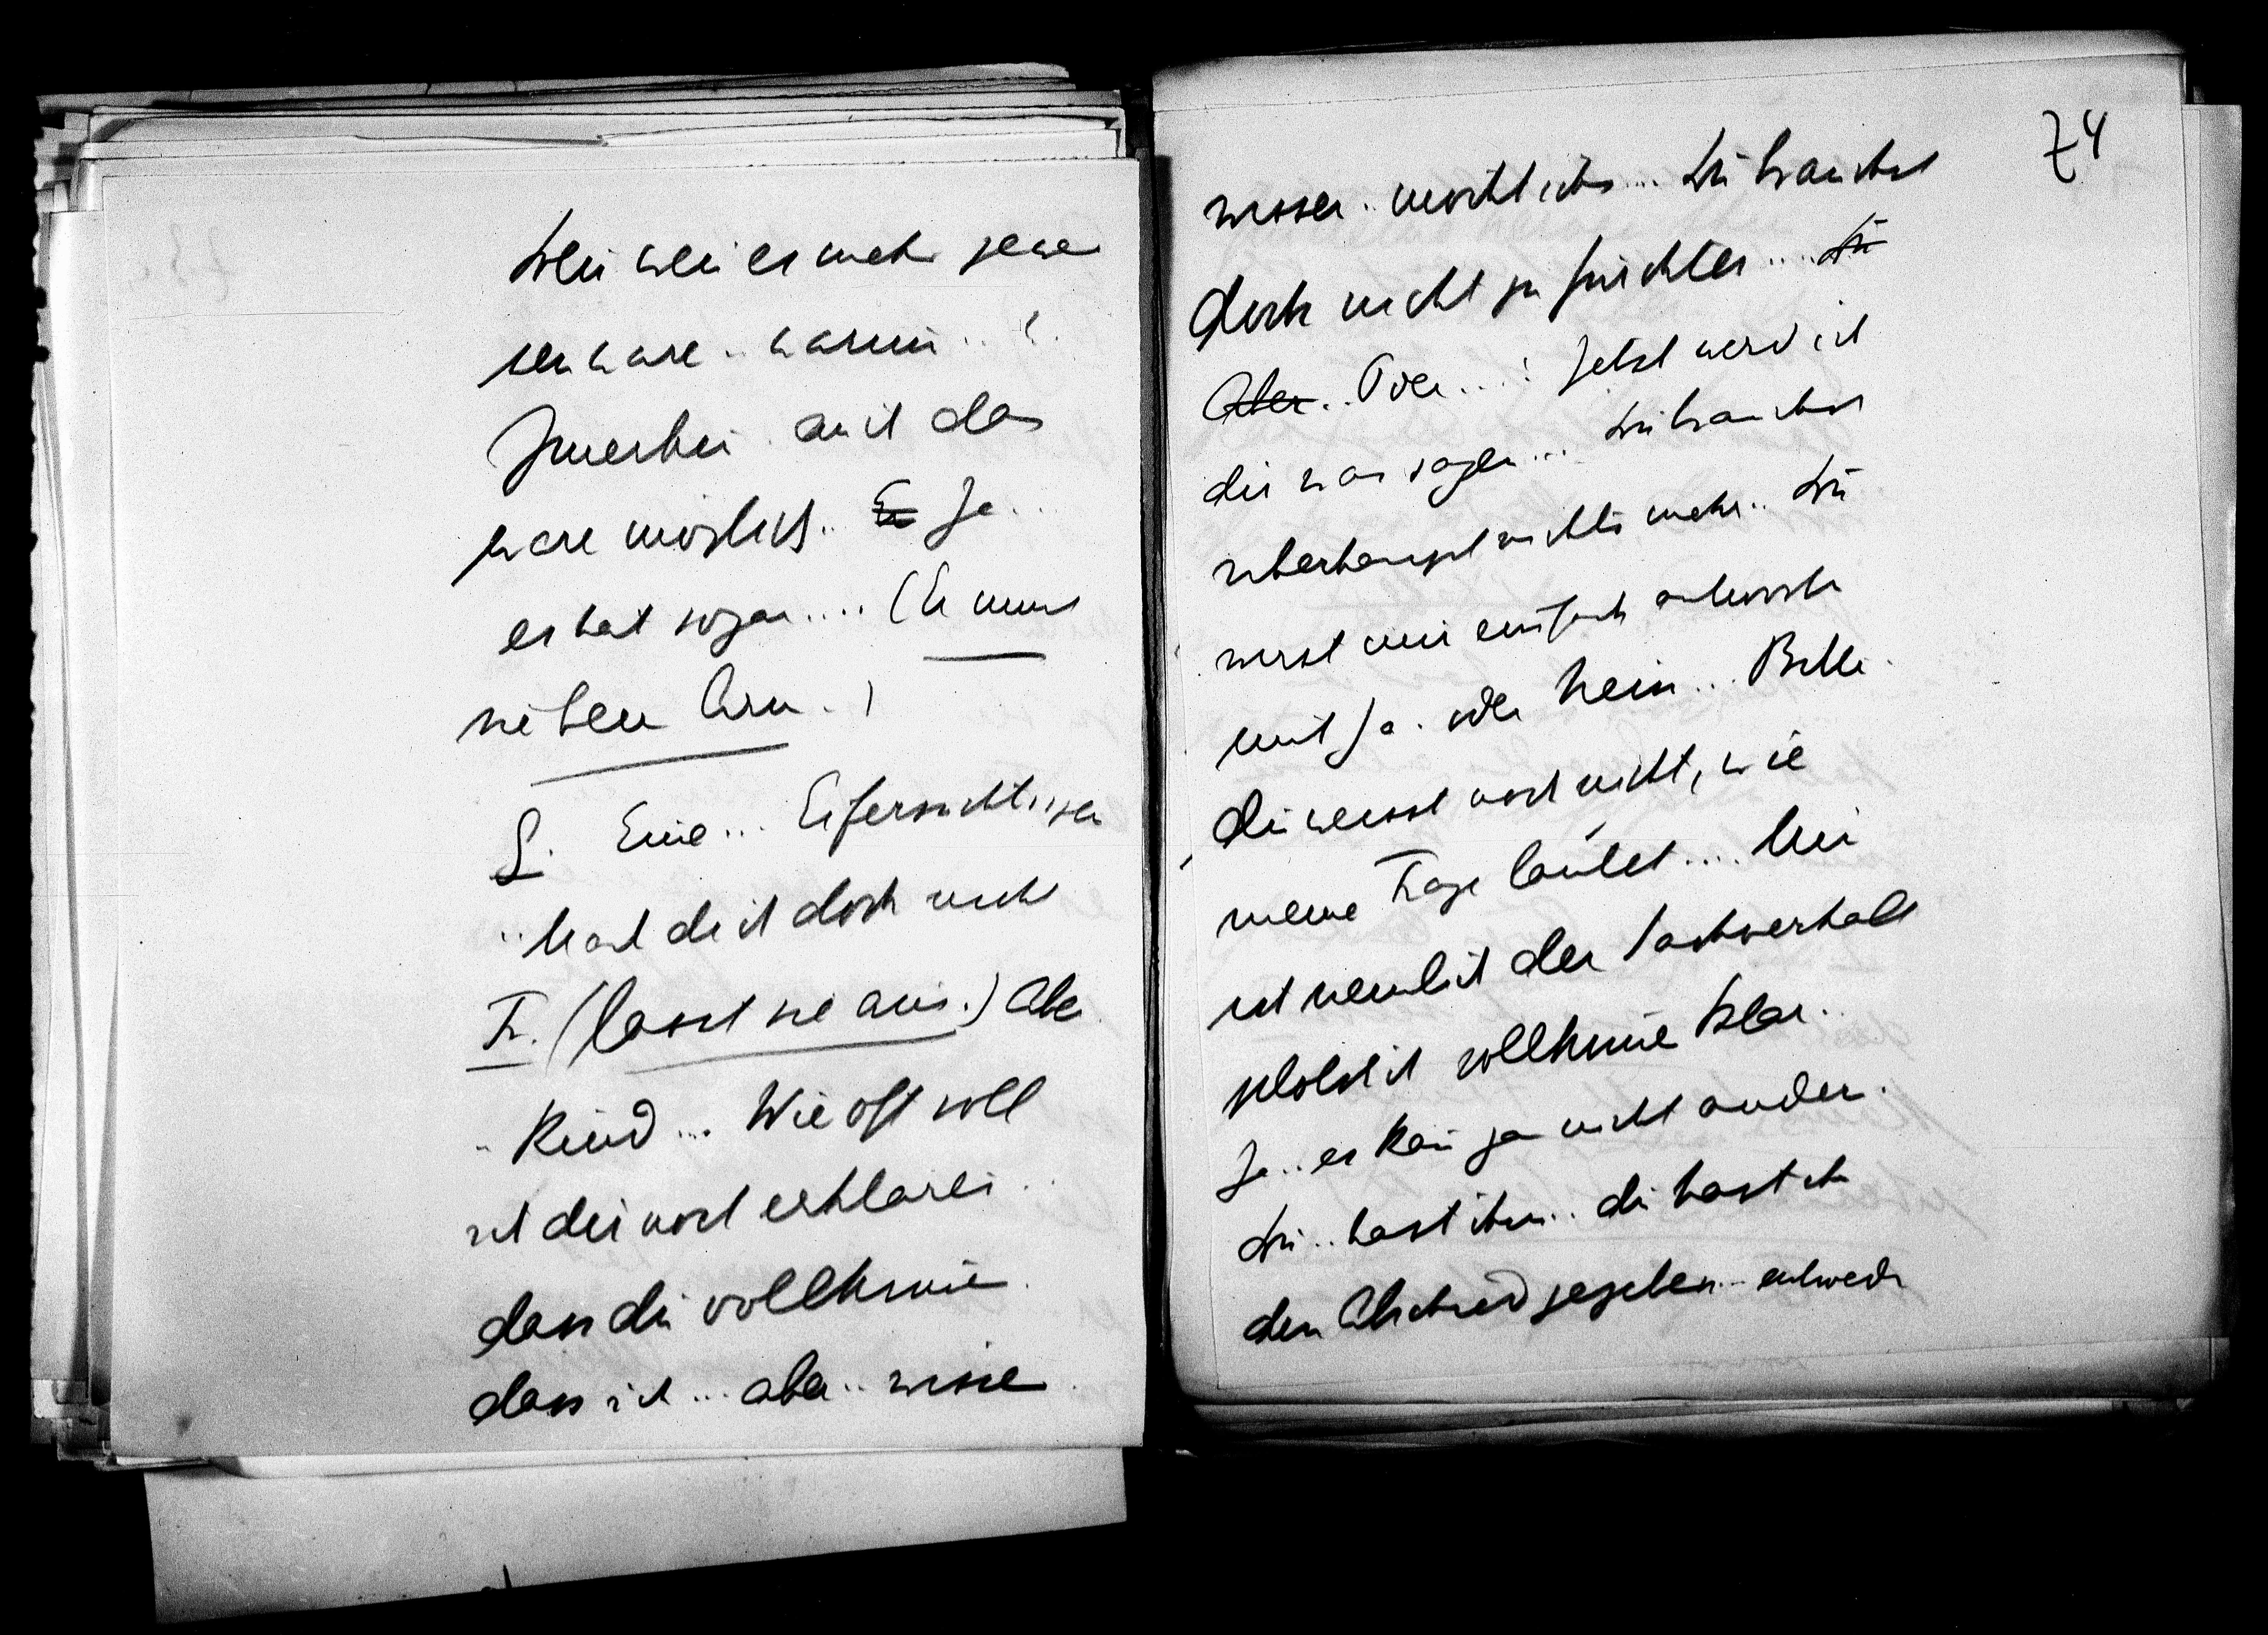 wen es mehr gewe
sen wäre.. warum.. ?
Immerhin auch das
wäre möglich.. E̶r̶ Ja...
er hat sogar.... (Er nimt
ihren Arm.)
L. Eine... Eifersüchtigen
.. hab dich doch nicht
Fr. (lasst sie aus.) Aber
.. Kind... Wie oft soll
ich dir noch erklären..
dass du vollkomen
dass ich... aber.. wissen
74
wissen.. möcht ichs... Du brauchst
doch nicht zu fürchten.... D̶u̶
A̶b̶e̶r̶.. Oder...? Jetzt werd ich
dir was sagen... Du brauchst
überhaupt nichts mehr.. Du
wirst mir einfach antworten
mit Ja.. oder Nein... Bitte
Du weisst noch nicht, wie
meine Frage lautet.... Mir
ist nemlich der Sachverhalt
plötzlich vollkomen klar..
Ja.. es kan ja nicht anders.
Du.. hast ihm.. du hast ihm
den Abschied gegeben.. entweder